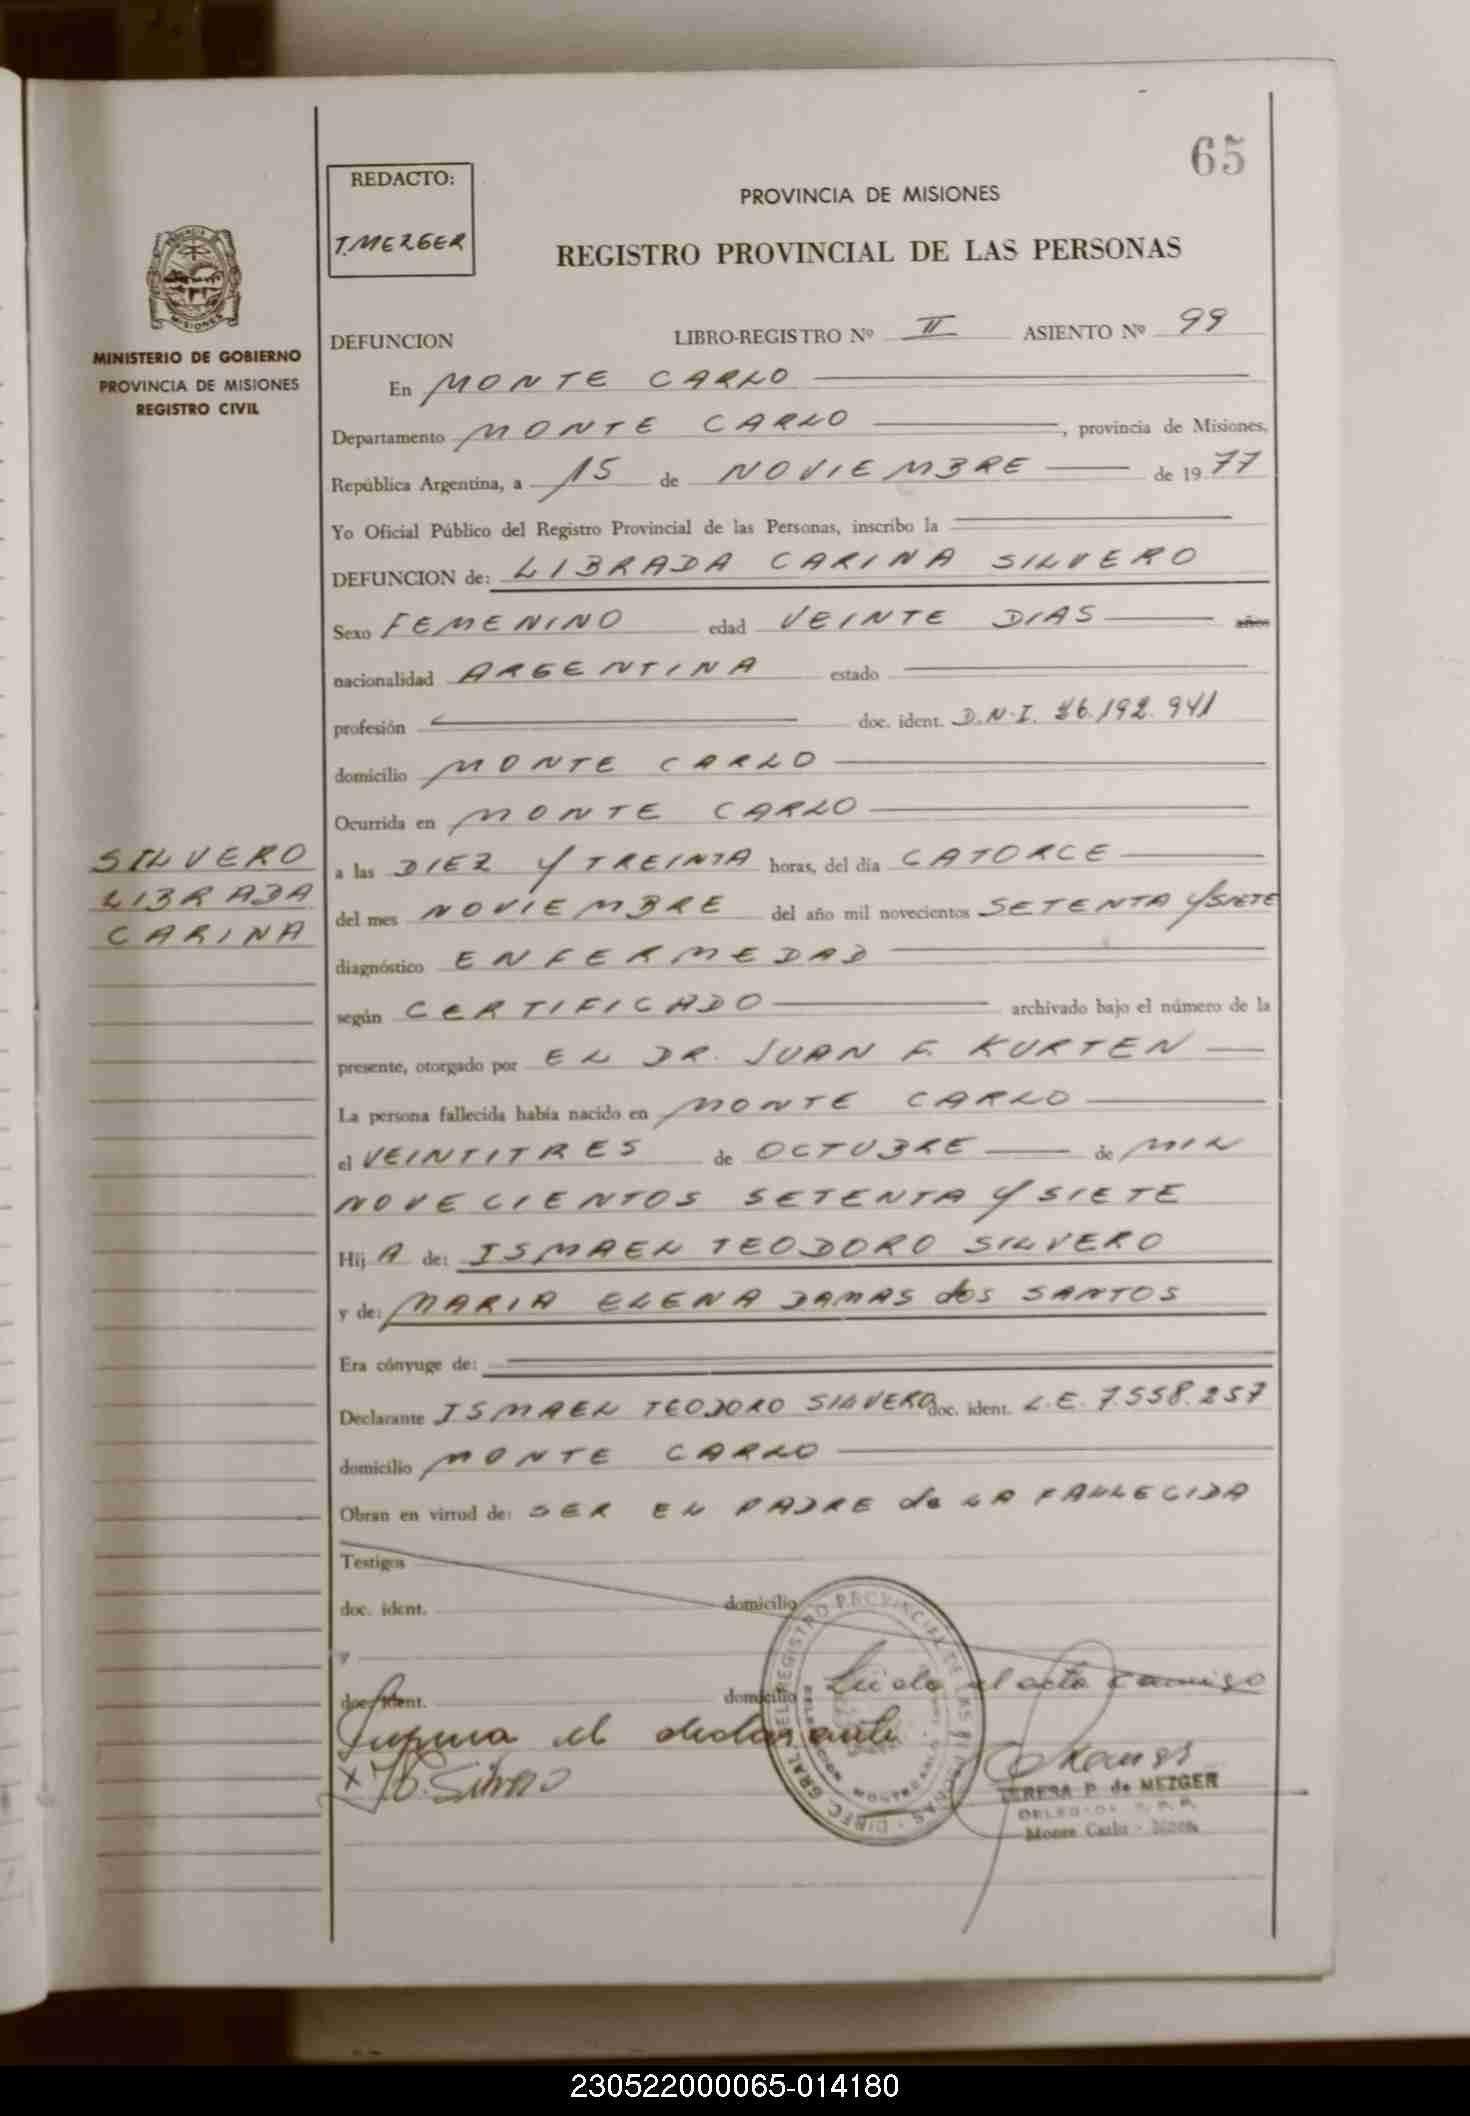 65
REDACTO:
T. MEZGER
PROVINCIA DE MISIONES
REGISTRO PROVINCIAL DE LAS PERSONAS
MISIONES
MINISTERIO DE GOBIERNO
PROVINCIA DE MISIONES
REGISTRO CIVIL
DEFUNCION LIBRO-REGISTRO Nº II ASIENTO Nº 99
En MONTE CARLO
Departamento MONTE CARLO, provincia de Misiones,
República Argentina, a 15 de NOVIEMBRE de 1977
Yo Oficial Público del Registro Provincial de las Personas, inscribo la
DEFUNCION de: LIBRADA CARINA SILVERO
Sexo FEMENINO edad VEINTE DIAS años
nacionalidad ARGENTINA estado
profesión doc. ident. D.N.I. 26.192.941
domicilio MONTE CARLO
Ocurrida en MONTE CARLO
SILVERO
LIBRADA
CARINA
a las DIEZ Y TREINTA horas, del día CATORCE
del mes NOVIEMBRE del año mil novecientos SETENTA Y SIETE
diagnóstico ENFERMEDAD
según CERTIFICADO archivado bajo el número de la
presente, otorgado por EL DR. JUAN F. KURTEN
La persona fallecida había nacido en MONTE CARLO
el VEINTITRES de OCTUBRE de MIL
NOVECIENTOS SETENTA Y SIETE
Hij A de: ISMAEL TEODORO SILVERO
y de: MARIA ELENA DAMAS dos SANTOS
Era cónyuge de:
Declarante ISMAEL TEODORO SILVERO doc. ident. L.E. 7.558.257
domicilio MONTE CARLO
Obran en virtud de: SER EL PADRE de LA FALLECIDA
Testigos
doc. ident. domicilio
y
doc. ident. domicilio
Leido el acto conmigo
Firma el declarante
Silvero
TERESA P. de MEZGER
Monte Carlo - Mnes.
230522000065-014180